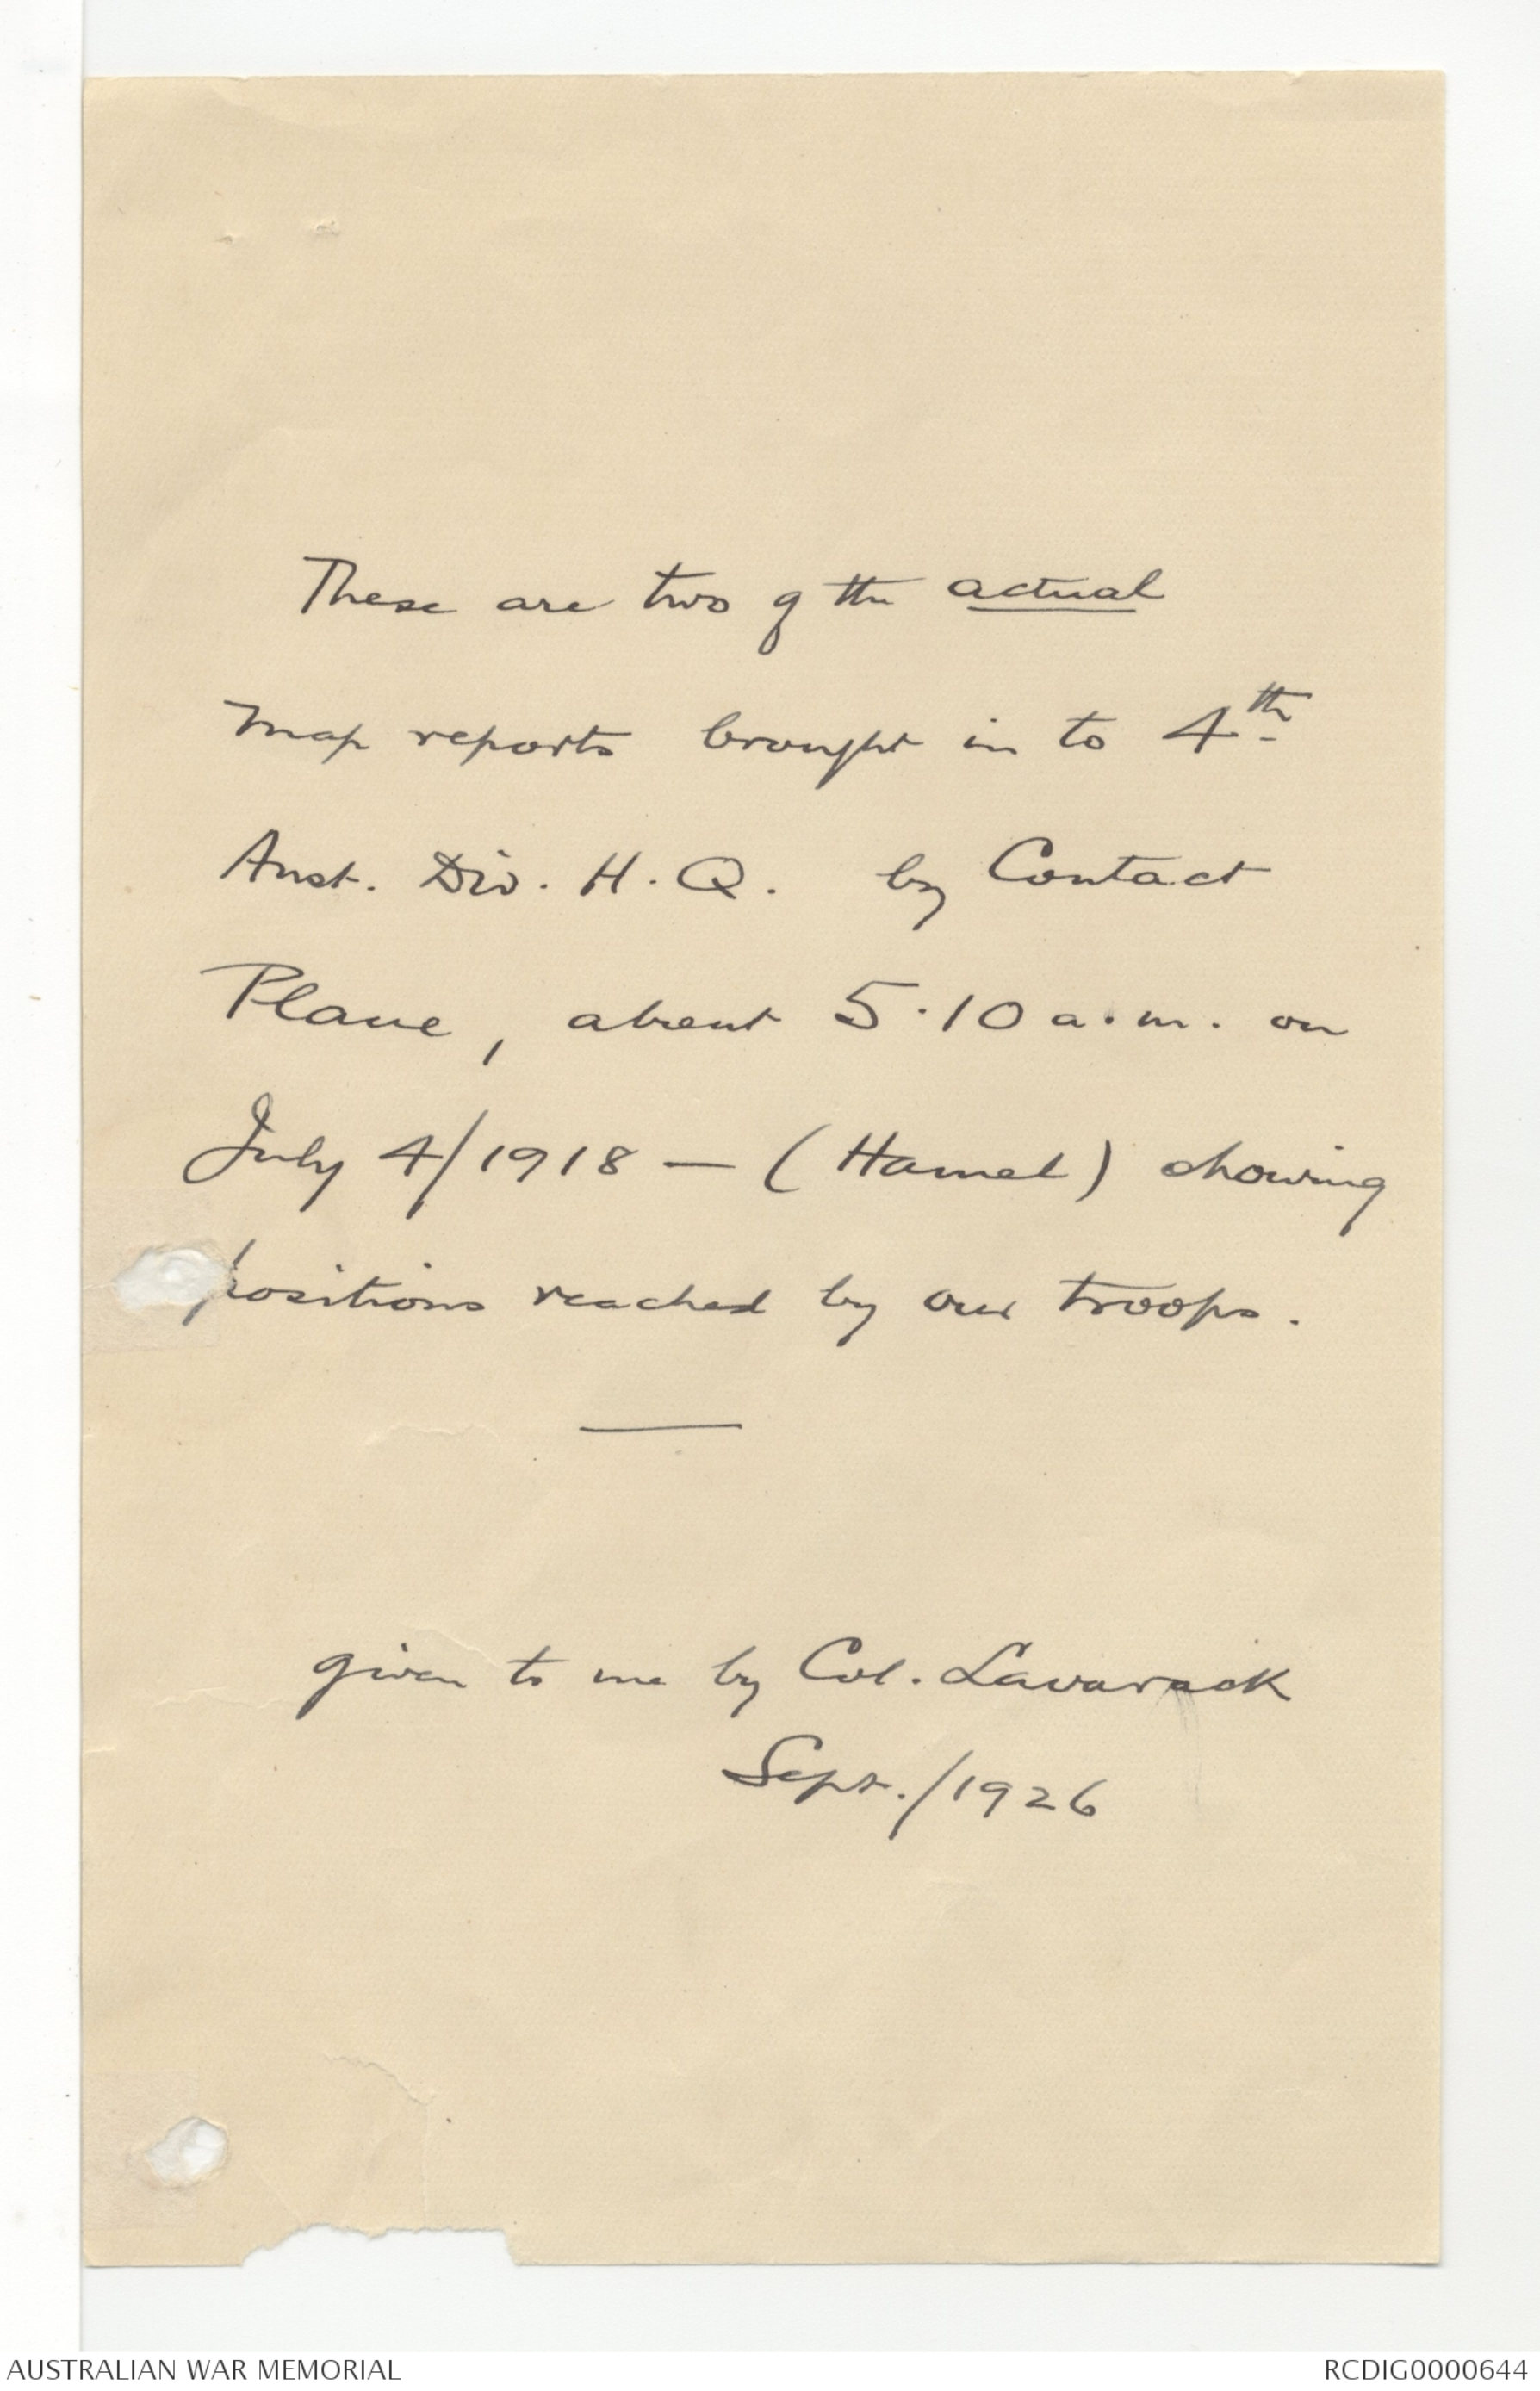 These are two of the actual
map reports brought in to 4th
Aust. Div. H.Q. by Contact
Plane, about 5.10 a.m. on
July 4/1918 — (Hamel) showing
positions reached by our troops.
given to me by Col. Lavarack
Sept./1926
AUSTRALIAN WAR MEMORIAL
RCDIG0000644